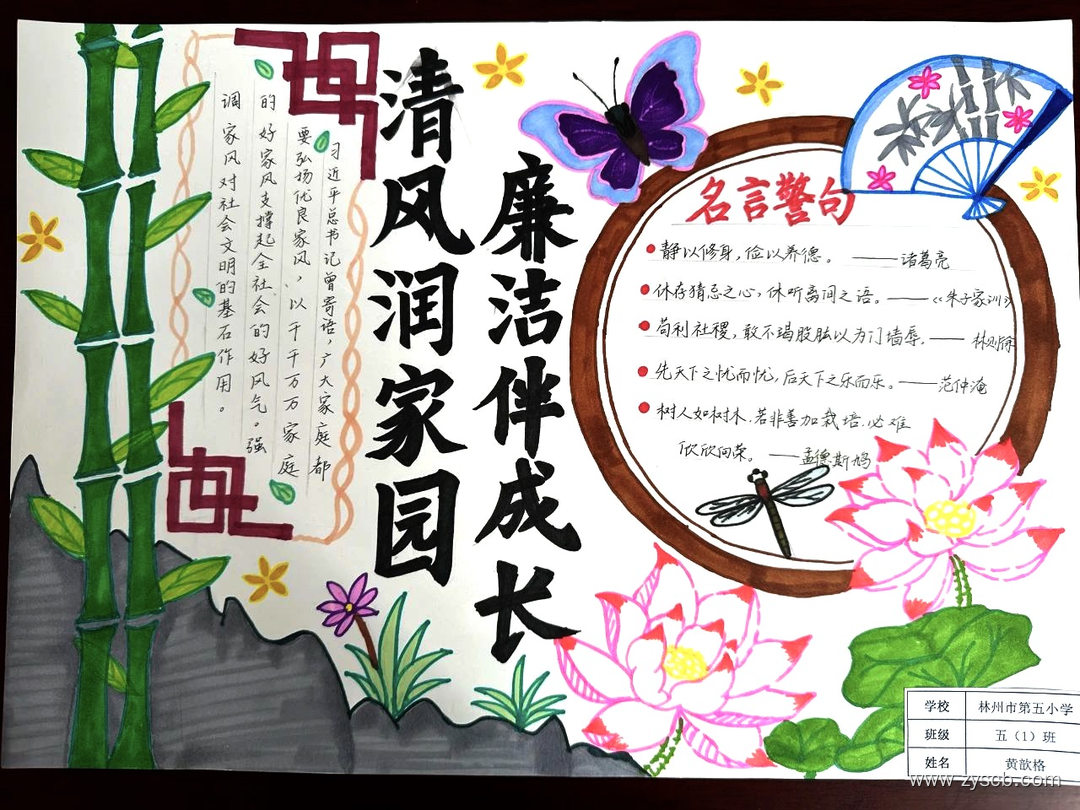 清风润家园
廉洁伴成长
习近平总书记曾寄语，广大家庭都
要弘扬优良家风，以千千万万家庭
的好家风支撑起全社会的好风气。强
调家风对社会文明的基石作用。
名言警句
静以修身，俭以养德。——诸葛亮
休存猜忌之心，休听离间之语。——《朱子家训》
苟利社稷，敢不竭股肱以为门墙辱.——林则徐
先天下之忧而忧，后天下之乐而乐。——范仲淹
树人如树木.若非善加栽培.必难
欣欣向荣。——孟德斯鸠
学校 林州市第五小学
班级 五（1）班
姓名 黄歆格
www.zyscb.com